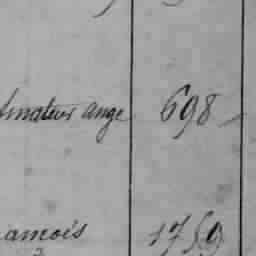 Amateur ange 698
amois 1759